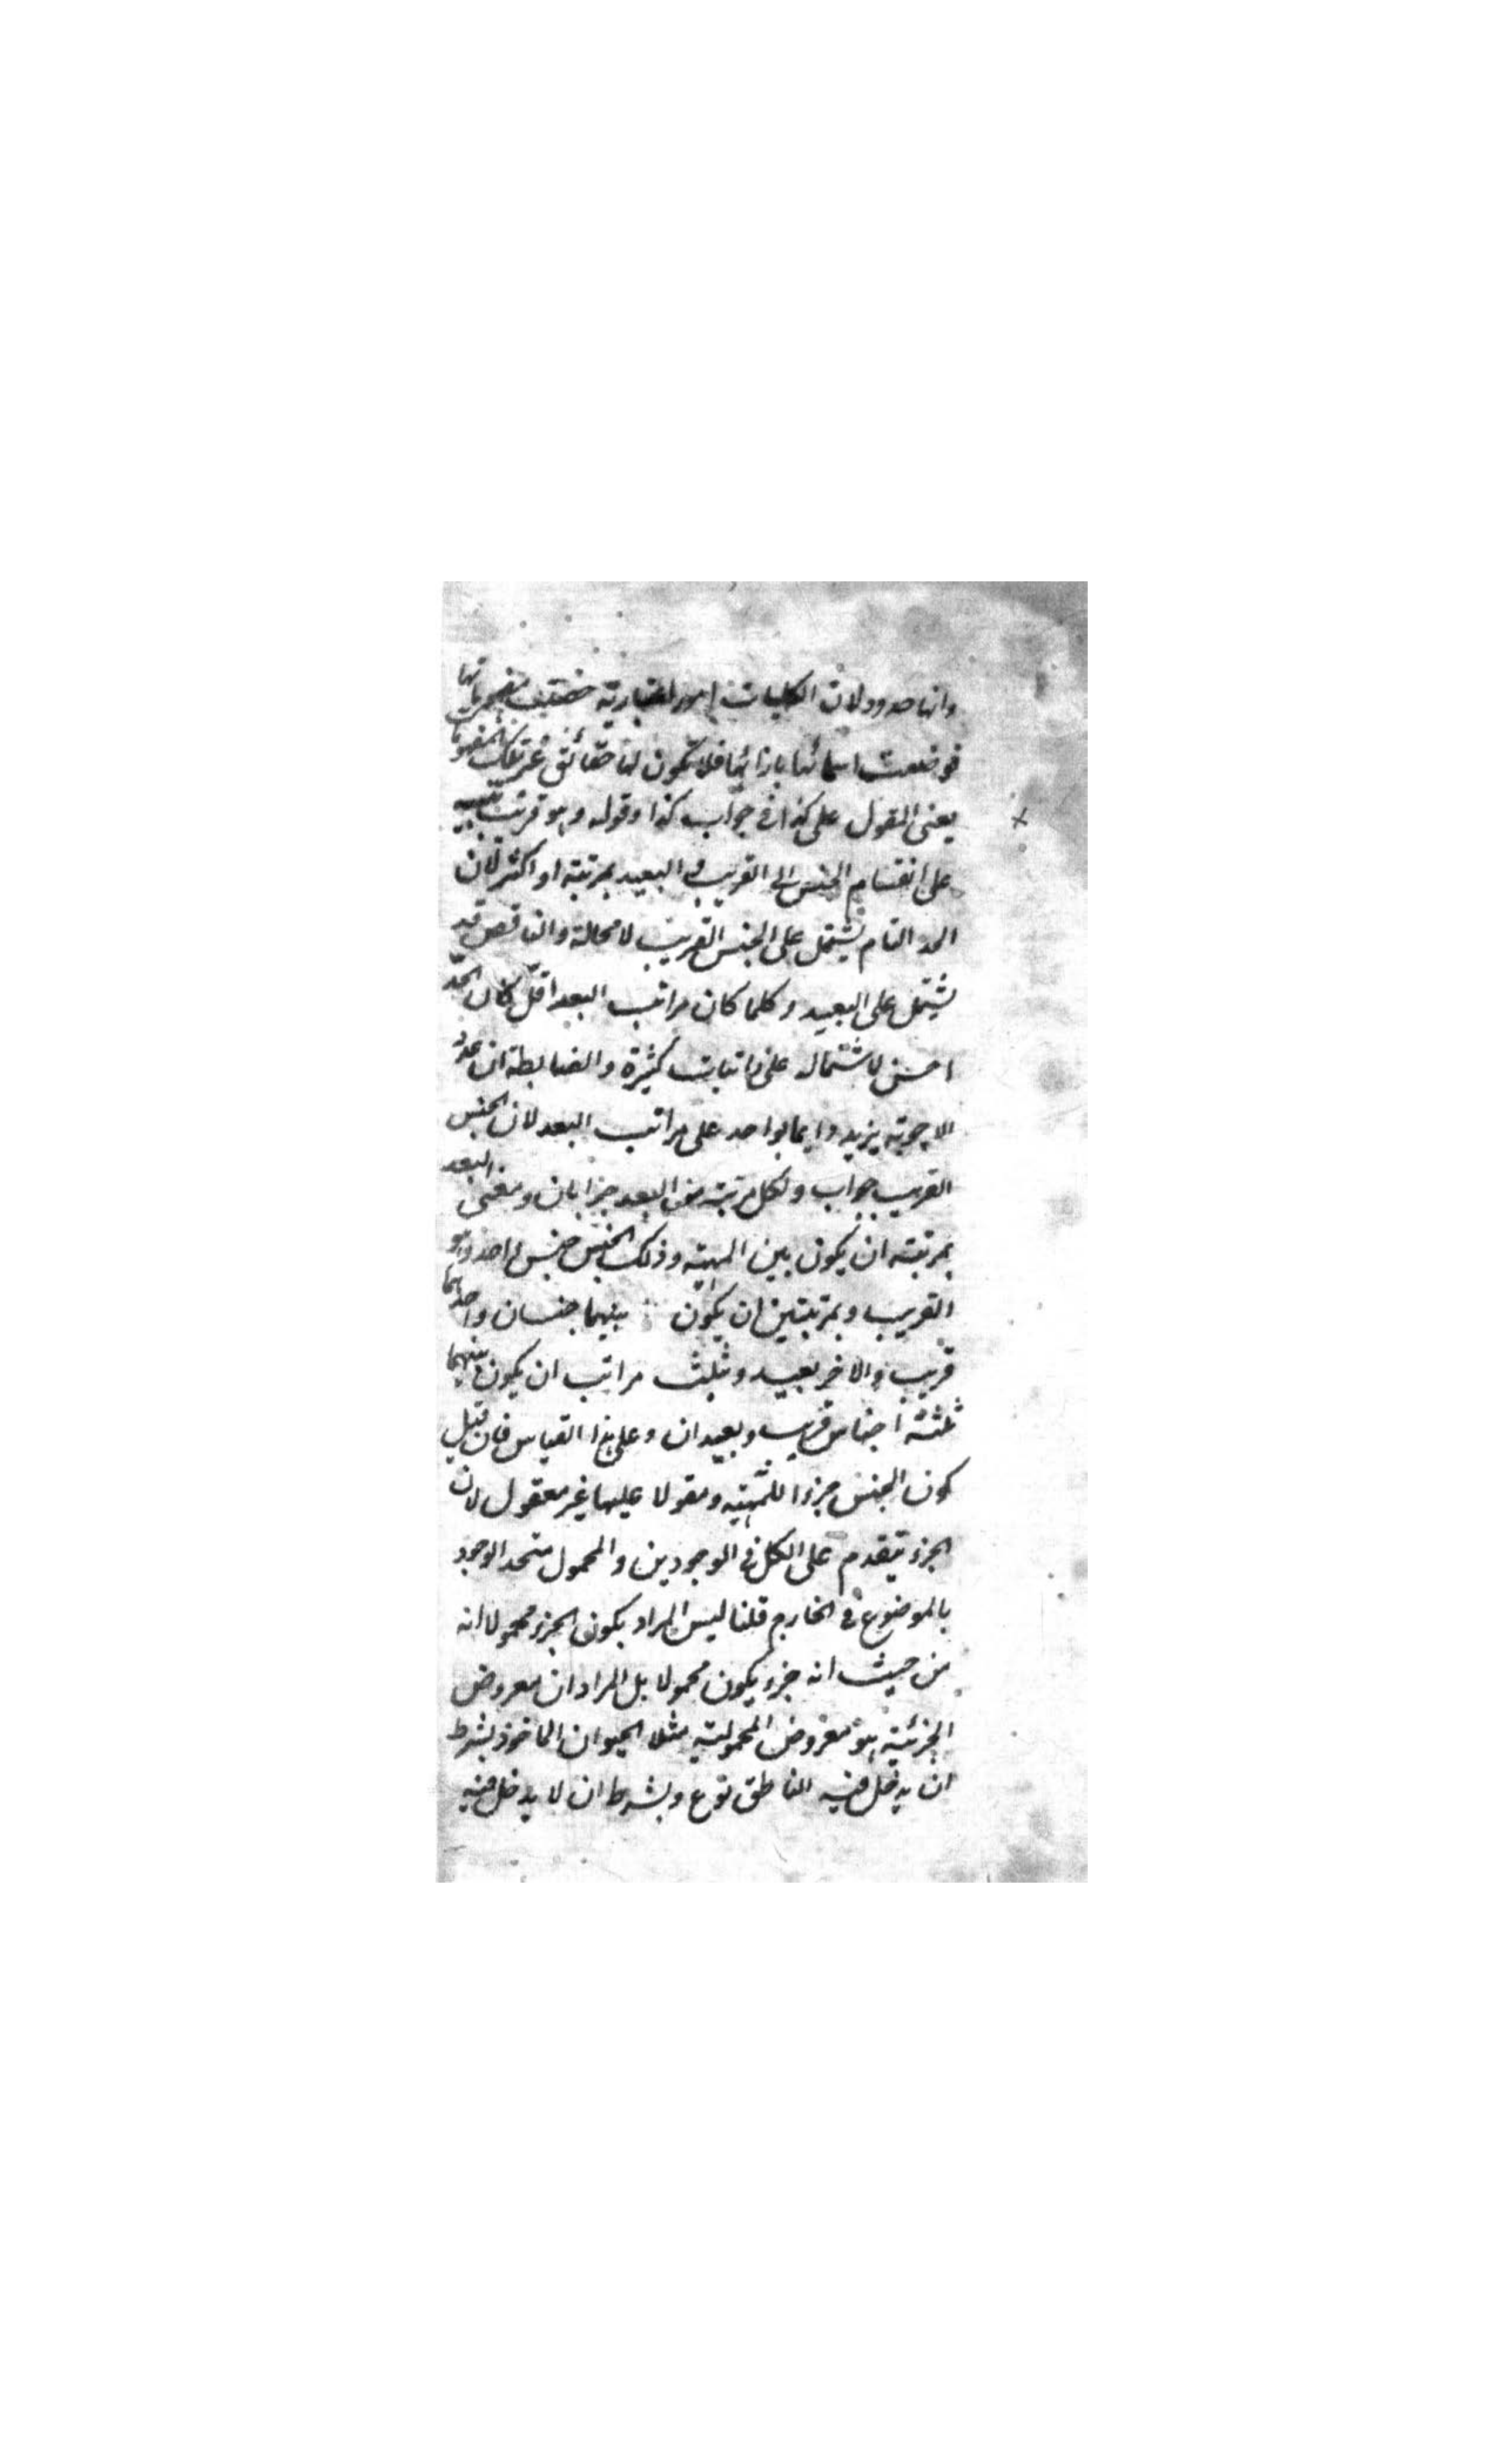 وانها حدود لان الكليات امور اعتبارية حصلت مفهوماتها
فوضعت اسمائها بازائها فلا تكون لها حقائق غير تلك المفهومات
يعنى المقول على كذا فى جواب كذا وقوله وهو قريب تنبيه
على انقسام الجنس الى القريب و البعيد بمرتبة او اكثر لان
الحد التام يشتمل على الجنس القريب لا محالة والناقص قد
يشتمل على البعيد وكلما كان مراتب البعد اقل كان الحد
احسن لاشتماله على ذاتيات كثيرة والضابطة ان عدد
الاجوبة يزيد دايما بواحد على مراتب البعد لان الجنس
القريب جواب ولكل مرتبة من البعد جوابان ومعنى البعد
بمرتبة ان يكون بين المهية وذلك الجنس جنس واحد وهو
القريب وبمرتبتين ان يكون بينهما جنسان واحدهما
قريب والاخر بعيد وبثلث مراتب ان يكون بينهما
ثلثة اجناس قريب وبعيدان وعلى هذا القياس فان قيل
كون الجنس جزءا للمهية ومقولا عليها غير معقول لان
الجزء يتقدم على الكل فى الوجودين والمحمول متحد الوجود
بالموضوع فى الخارج قلنا ليس المراد بكون الجزء محمولا انه
من حيث انه جزء يكون محمولا بل المراد ان معروض
الجزئية هو معروض المحمولية مثلا الحيوان الماخوذ بشرط
ان يدخل فيه الناطق نوع وبشرط ان لا يدخل فيه